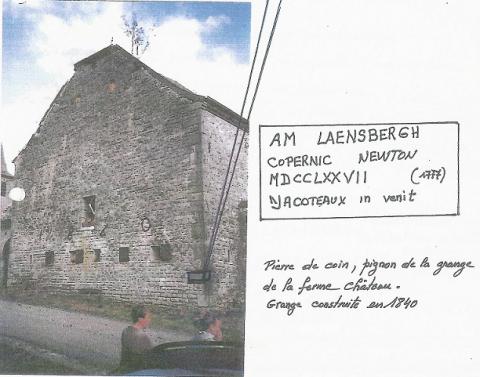 AM LAENSBERGH
COPERNIC NEWTON
MDCCLXXVII (1777)
DJACOTEAUX in venit
Pierre de coin, pignon de la grange
de la ferme Château.
Grange construite en 1840